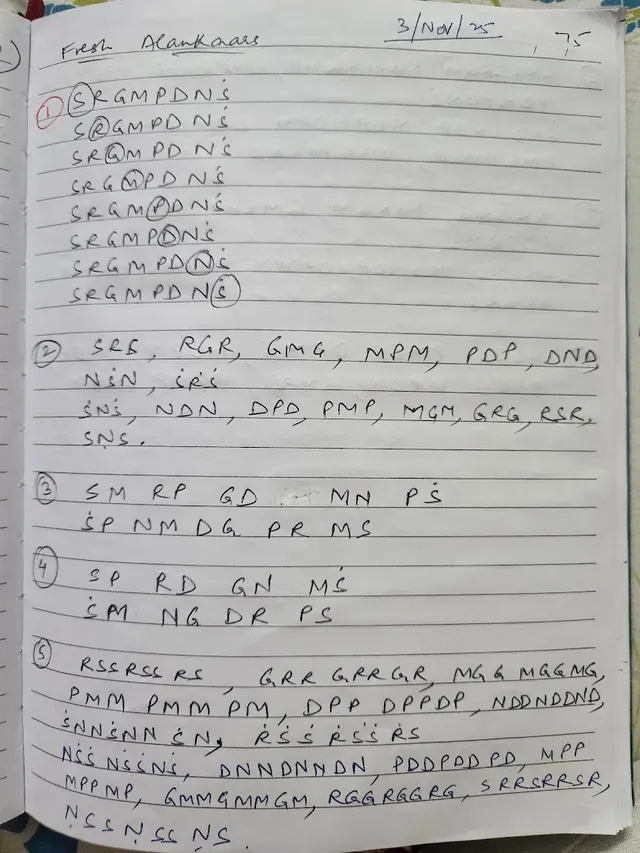 Fresh Alankaars 3/Nov/25 , 75
① SRGMPDNṠ
SRGMPDNṠ
SRGMPDNṠ
SRGMPDNṠ
SRGMPDNṠ
SRGMPDNṠ
SRGMPDNṠ
SRGMPDNṠ
② SRS, RGR, GMG, MPM, PDP, DND,
NṠN, ṠṘṠ
ṠNṠ, NDN, DPD, PMP, MGM, GRG, RSR,
SṆS.
③ SM RP GD MN PṠ
ṠP NM DG PR MS
④ SP RD GN MṠ
ṠM NG DR PS
⑤ RSSRSS RS, GRR GRRGR, MGG MGGMG,
PMM PMM PM, DPP DPPDP, NDDNDDND,
ṠNNṠNN ṠN, ṘṠṠ ṘṠṠ ṘṠ
NṠṠ NṠṠNṠ, DNNDNNDN, PDDPDDPD, MPP
MPPMP, GMMGMMGM, RGGRGGRG, SRRSRRSR,
ṆSS ṆSS ṆS.